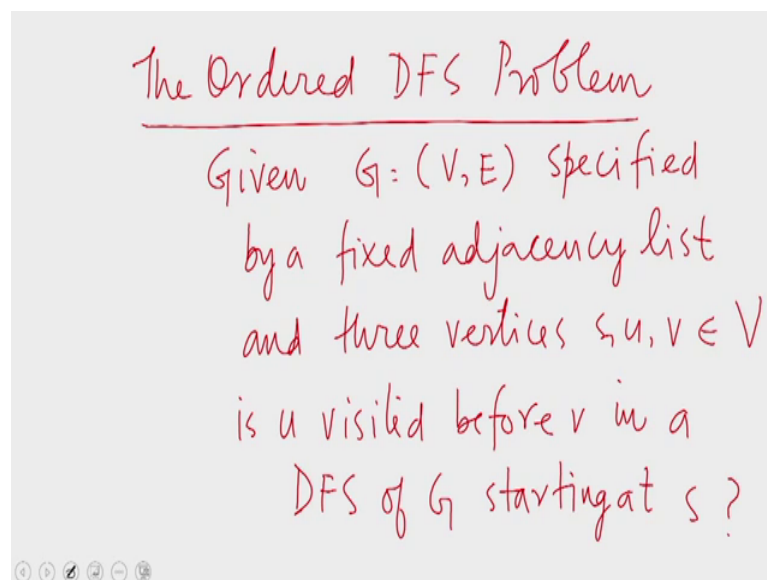 The Ordered DFS Problem
Given G = (V, E) specified
by a fixed adjacency list
and three vertices s, u, v ∈ V
is u visited before v in a
DFS of G starting at s ?